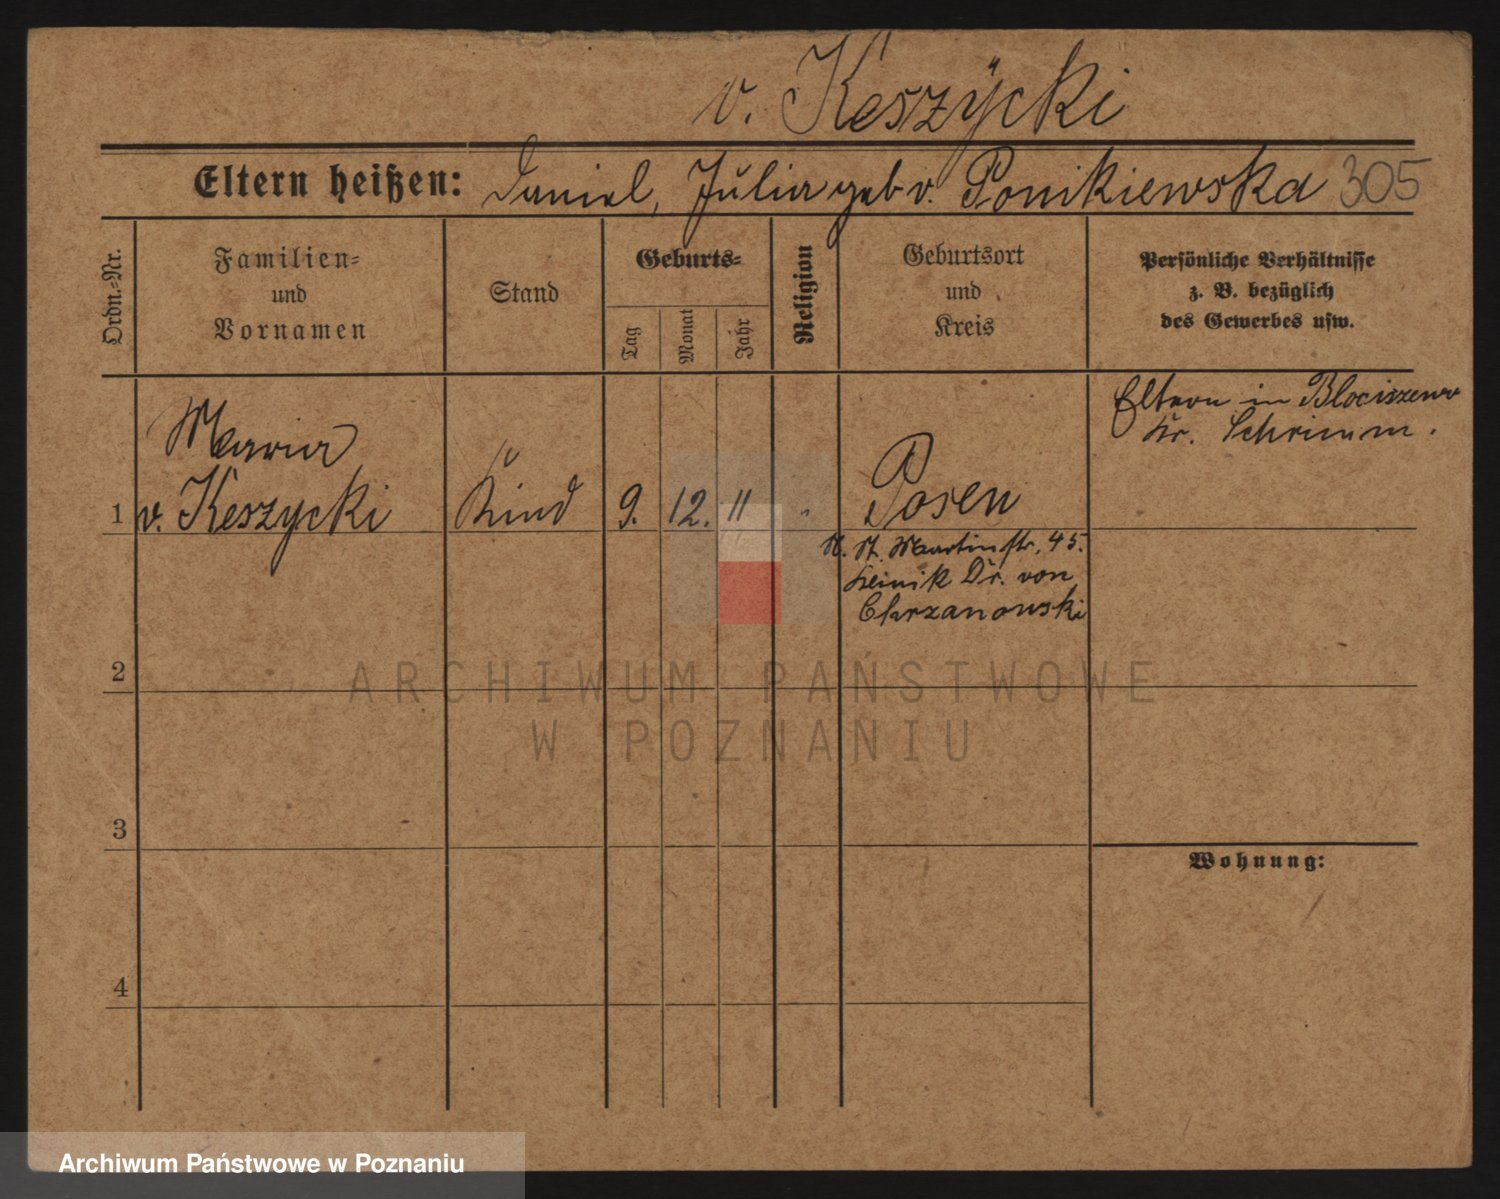 v. Keszÿcki
Eltern heißen: Daniel, Julia geb v. Ponikiewska 305
Ordn.-Nr.
Familien-
und
Vornamen
Stand
Geburts-
Tag
Monat
Jahr
Religion
Geburtsort
und
Kreis
Persönliche Verhältnisse
z. B. bezüglich
des Gewerbes usw.
Eltern in Blociszewo
Kr. Schrimm.
Maria
1 v. Keszycki Kind 9. 12. 11 " Posen
St. Martinstr. 45.
Klinik Dr. von
Chrzanowski
2
3
4
Wohnung:
ARCHIWUM PAŃSTWOWE
W POZNANIU
Archiwum Państwowe w Poznaniu